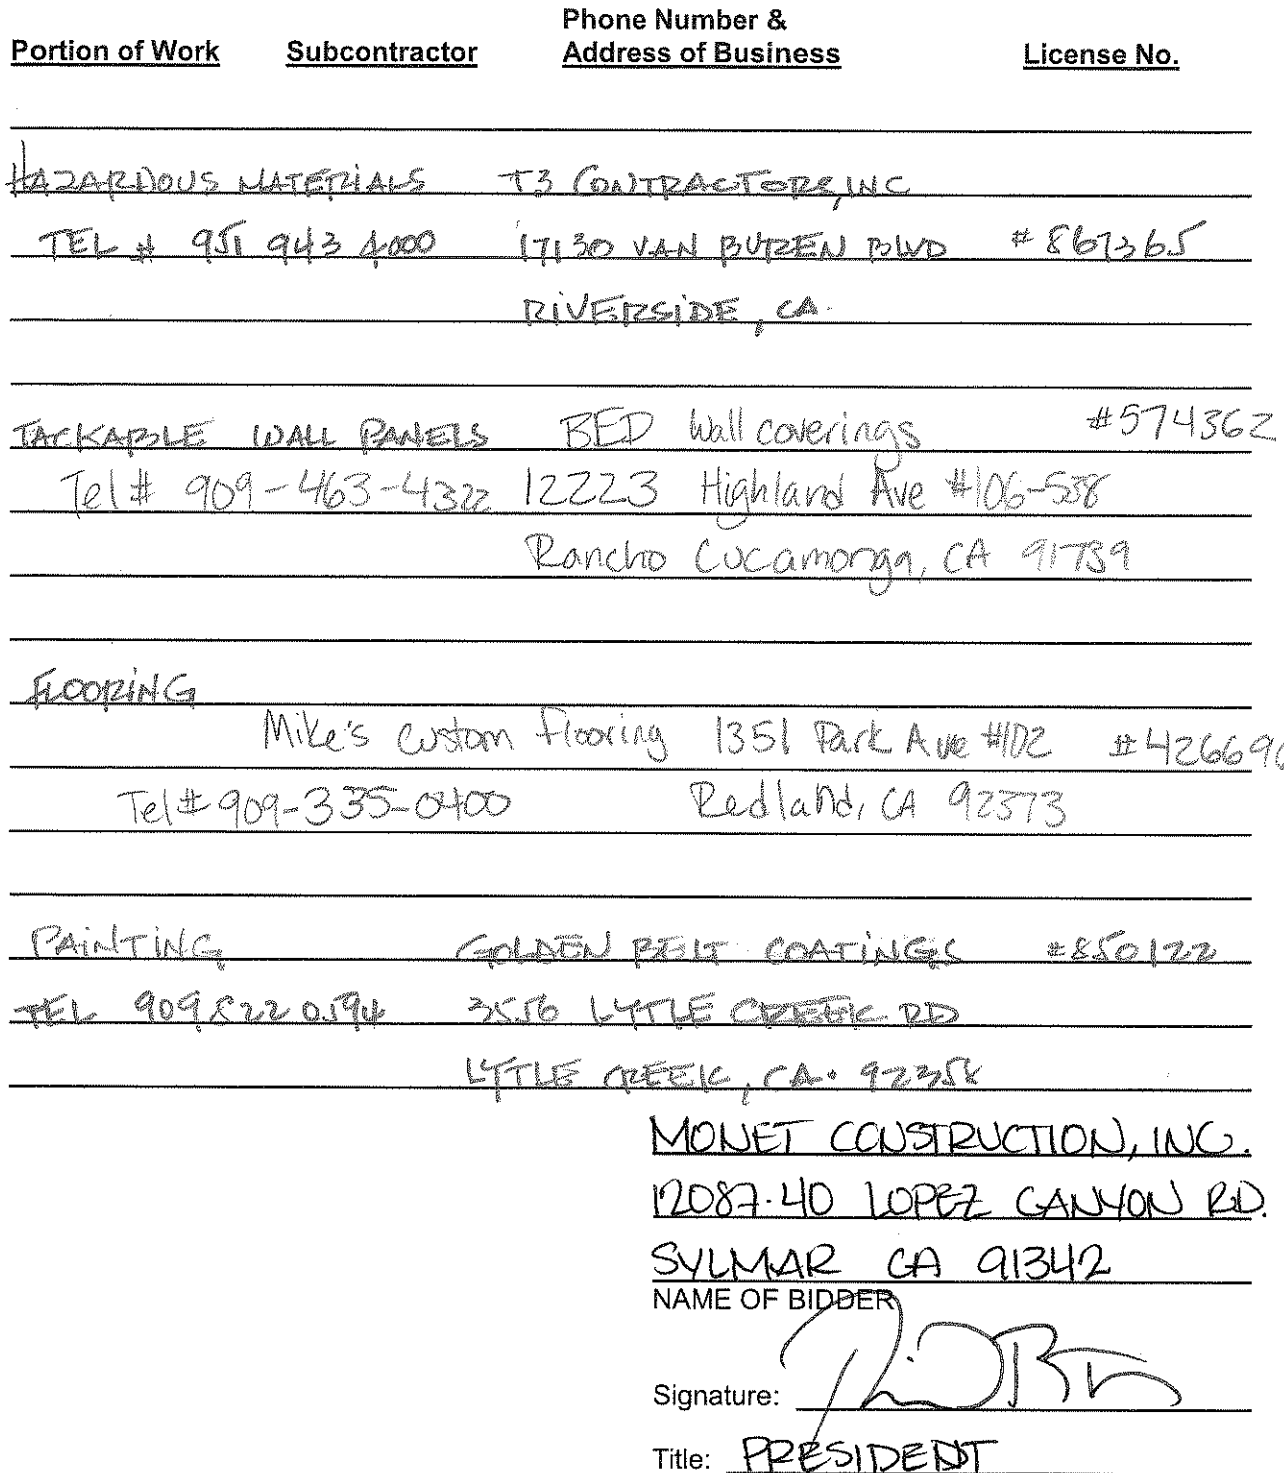 Phone Number &
Portion of Work Subcontractor Address of Business License No.
HAZARDOUS MATERIALS T3 CONTRACTORS, INC
TEL # 951 943 4000 17130 VAN BUREN BLVD # 867365
RIVERSIDE, CA.
TACKABLE WALL PANELS BED Wall coverings #574362
Tel # 909-463-4322 12223 Highland Ave #106-538
Rancho Cucamonga, CA 91739
FLOORING
Mike's custom flooring 1351 Park Ave #102 #426690
Tel # 909-335-0400 Redland, CA 92373
PAINTING GOLDEN BELT COATINGS #850122
TEL 909 822 0594 3556 LYTLE CREEK RD
LYTLE CREEK, CA. 92358
MONET CONSTRUCTION, INC.
12087-40 LOPEZ CANYON RD.
SYLMAR CA 91342
NAME OF BIDDER
Signature:
Title: PRESIDENT